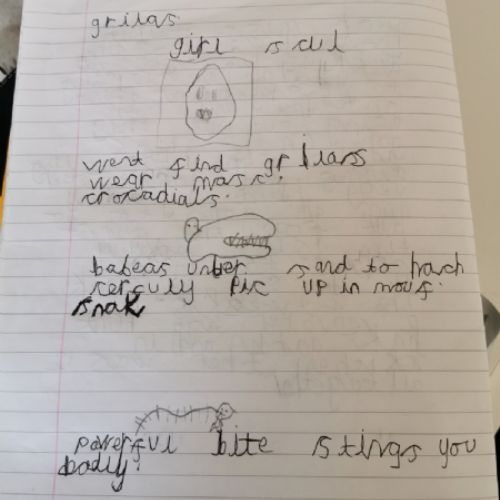 grilas
girl scul
went find grilars
wear masc.
crocadials.
babeas unber sand to hach
cerfuly pic up in mouf.
snak
powerful bite stings you
badly.